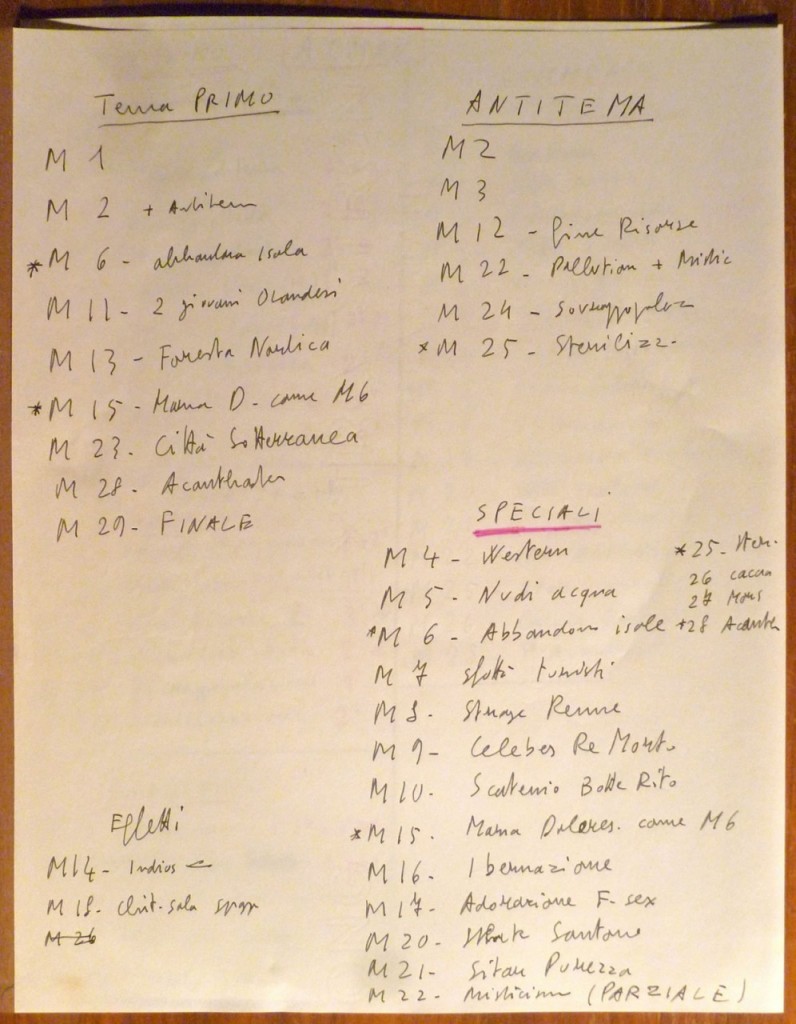 Tema PRIMO
M 1
M 2 + Antitema
* M 6 - abbandona Isola
M 11 - 2 giovani Olandesi
M 13 - Foresta Nordica
* M 15 - Mama D - come M6
M 23 - Città Sotterranea
M 28 - Acanthaster
M 29 - FINALE
ANTITEMA
M 2
M 3
M 12 - Fine Risorse
M 22 - Pollution +
M 24 -
* M 25 - Sterilizz -
SPECIALI
M 4 - Western
M 5 - Nudi acqua
* M 6 - Abbandono isole
M 7 turisti
M 8 - Strage Renne
M 9 - Celebes Re Morto
M 10 - Botte Rito
* M 15 - Mama Dolores. come M6
M 16 - Ibernazione
M 17 - Adorazione F. sex
M 20 - Santone
M 21 - Sitar Purezza
M 22 - misticismo (PARZIALE)
* 25 - Ster.
26
27 Mons
+28 Acanth
Effetti
M14 - Indios
M 18 - sala
M 26